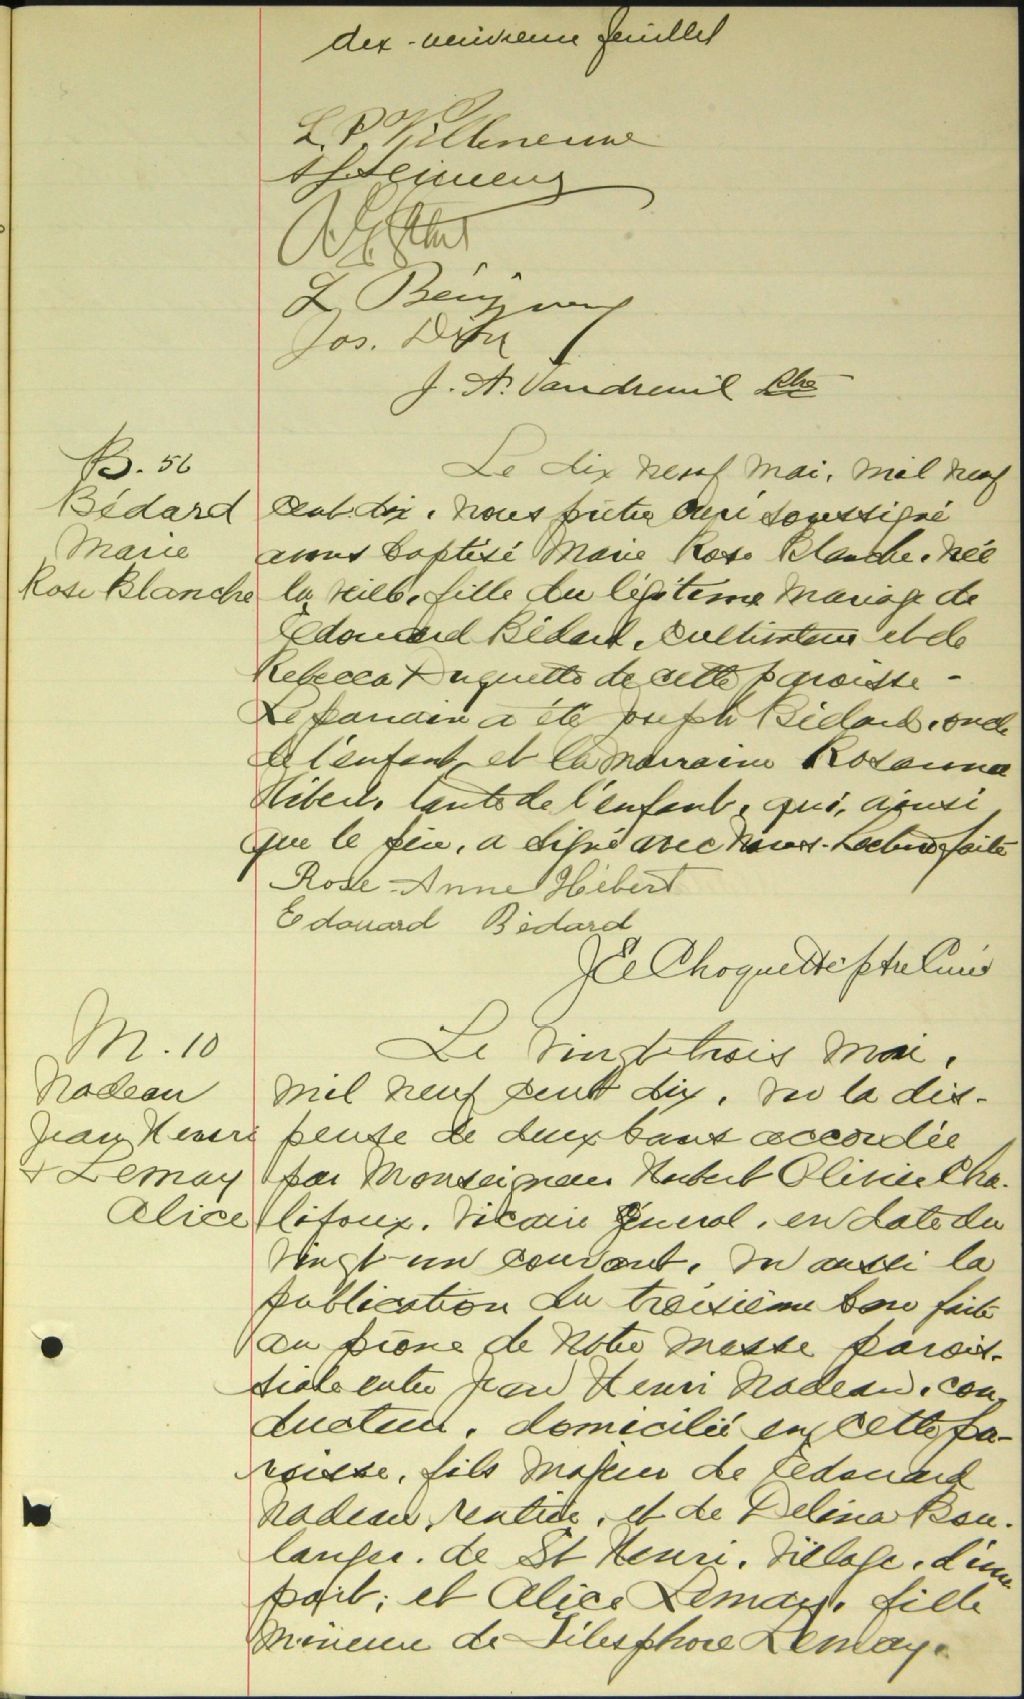 dix-neuvieme feuillet
L. P. Villeneuve
Jos. Dion
J. A. Vaudreuil Ptre
B. 56
Bédard
Marie
Rose Blanche
Le dix neuf mai, mil neuf
cent dix, nous prêtre curé soussigné
avons baptisé Marie Rose Blanche, née
la veille, fille du légitime mariage de
Edouard Bédard, cultivateur et de
Rebecca Duquette de cette paroisse -
Le parrain a été Joseph Bédard, oncle
de l'enfant, et la marraine Rosanna
Hébert, tante de l'enfant, qui, ainsi
que le père, a signé avec nous. Lecture faite
Rose-Anne Hébert
Edouard Bédard
J E Choquette ptre Curé
M. 10
Nadeau
Jean Henri
& Lemay
Alice
Le vingt trois mai,
mil neuf cent dix, vu la dis-
pense de deux bans accordée
par Monseigneur Hubert Olivier Cha-
lifoux, vicaire général, en date du
vingt-un courant, vu aussi la
publication du troisième ban faite
au prône de notre messe parois-
siale entre Jean Henri Nadeau, con-
ducteur, domicilié en cette pa-
roisse, fils majeur de Edouard
Nadeau, rentier, et de Delina Bou-
langer, de St Henri, village, d'une
part; et Alice Lemay, fille
mineure de Télesphore Lemay,